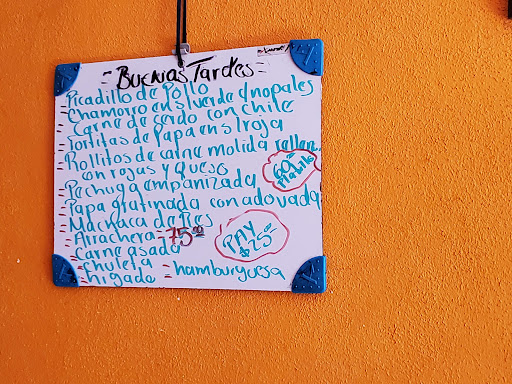 = Buenas Tardes =
- Picadillo de Pollo
- Chamorro en s/verde c/nopales
- Carne de cerdo con chile
- Tortitas de Papa en s/roja
- Rollitos de carne molida rellen..
con rajas y queso
- Pechuga empanizada
- Papa gratinada con adovada
- Machaca de Res
- Arrachera - 75.00
- Carne asada
- chuleta
- higado - hamburguesa
60.00
Platillo
PAY
$25.00